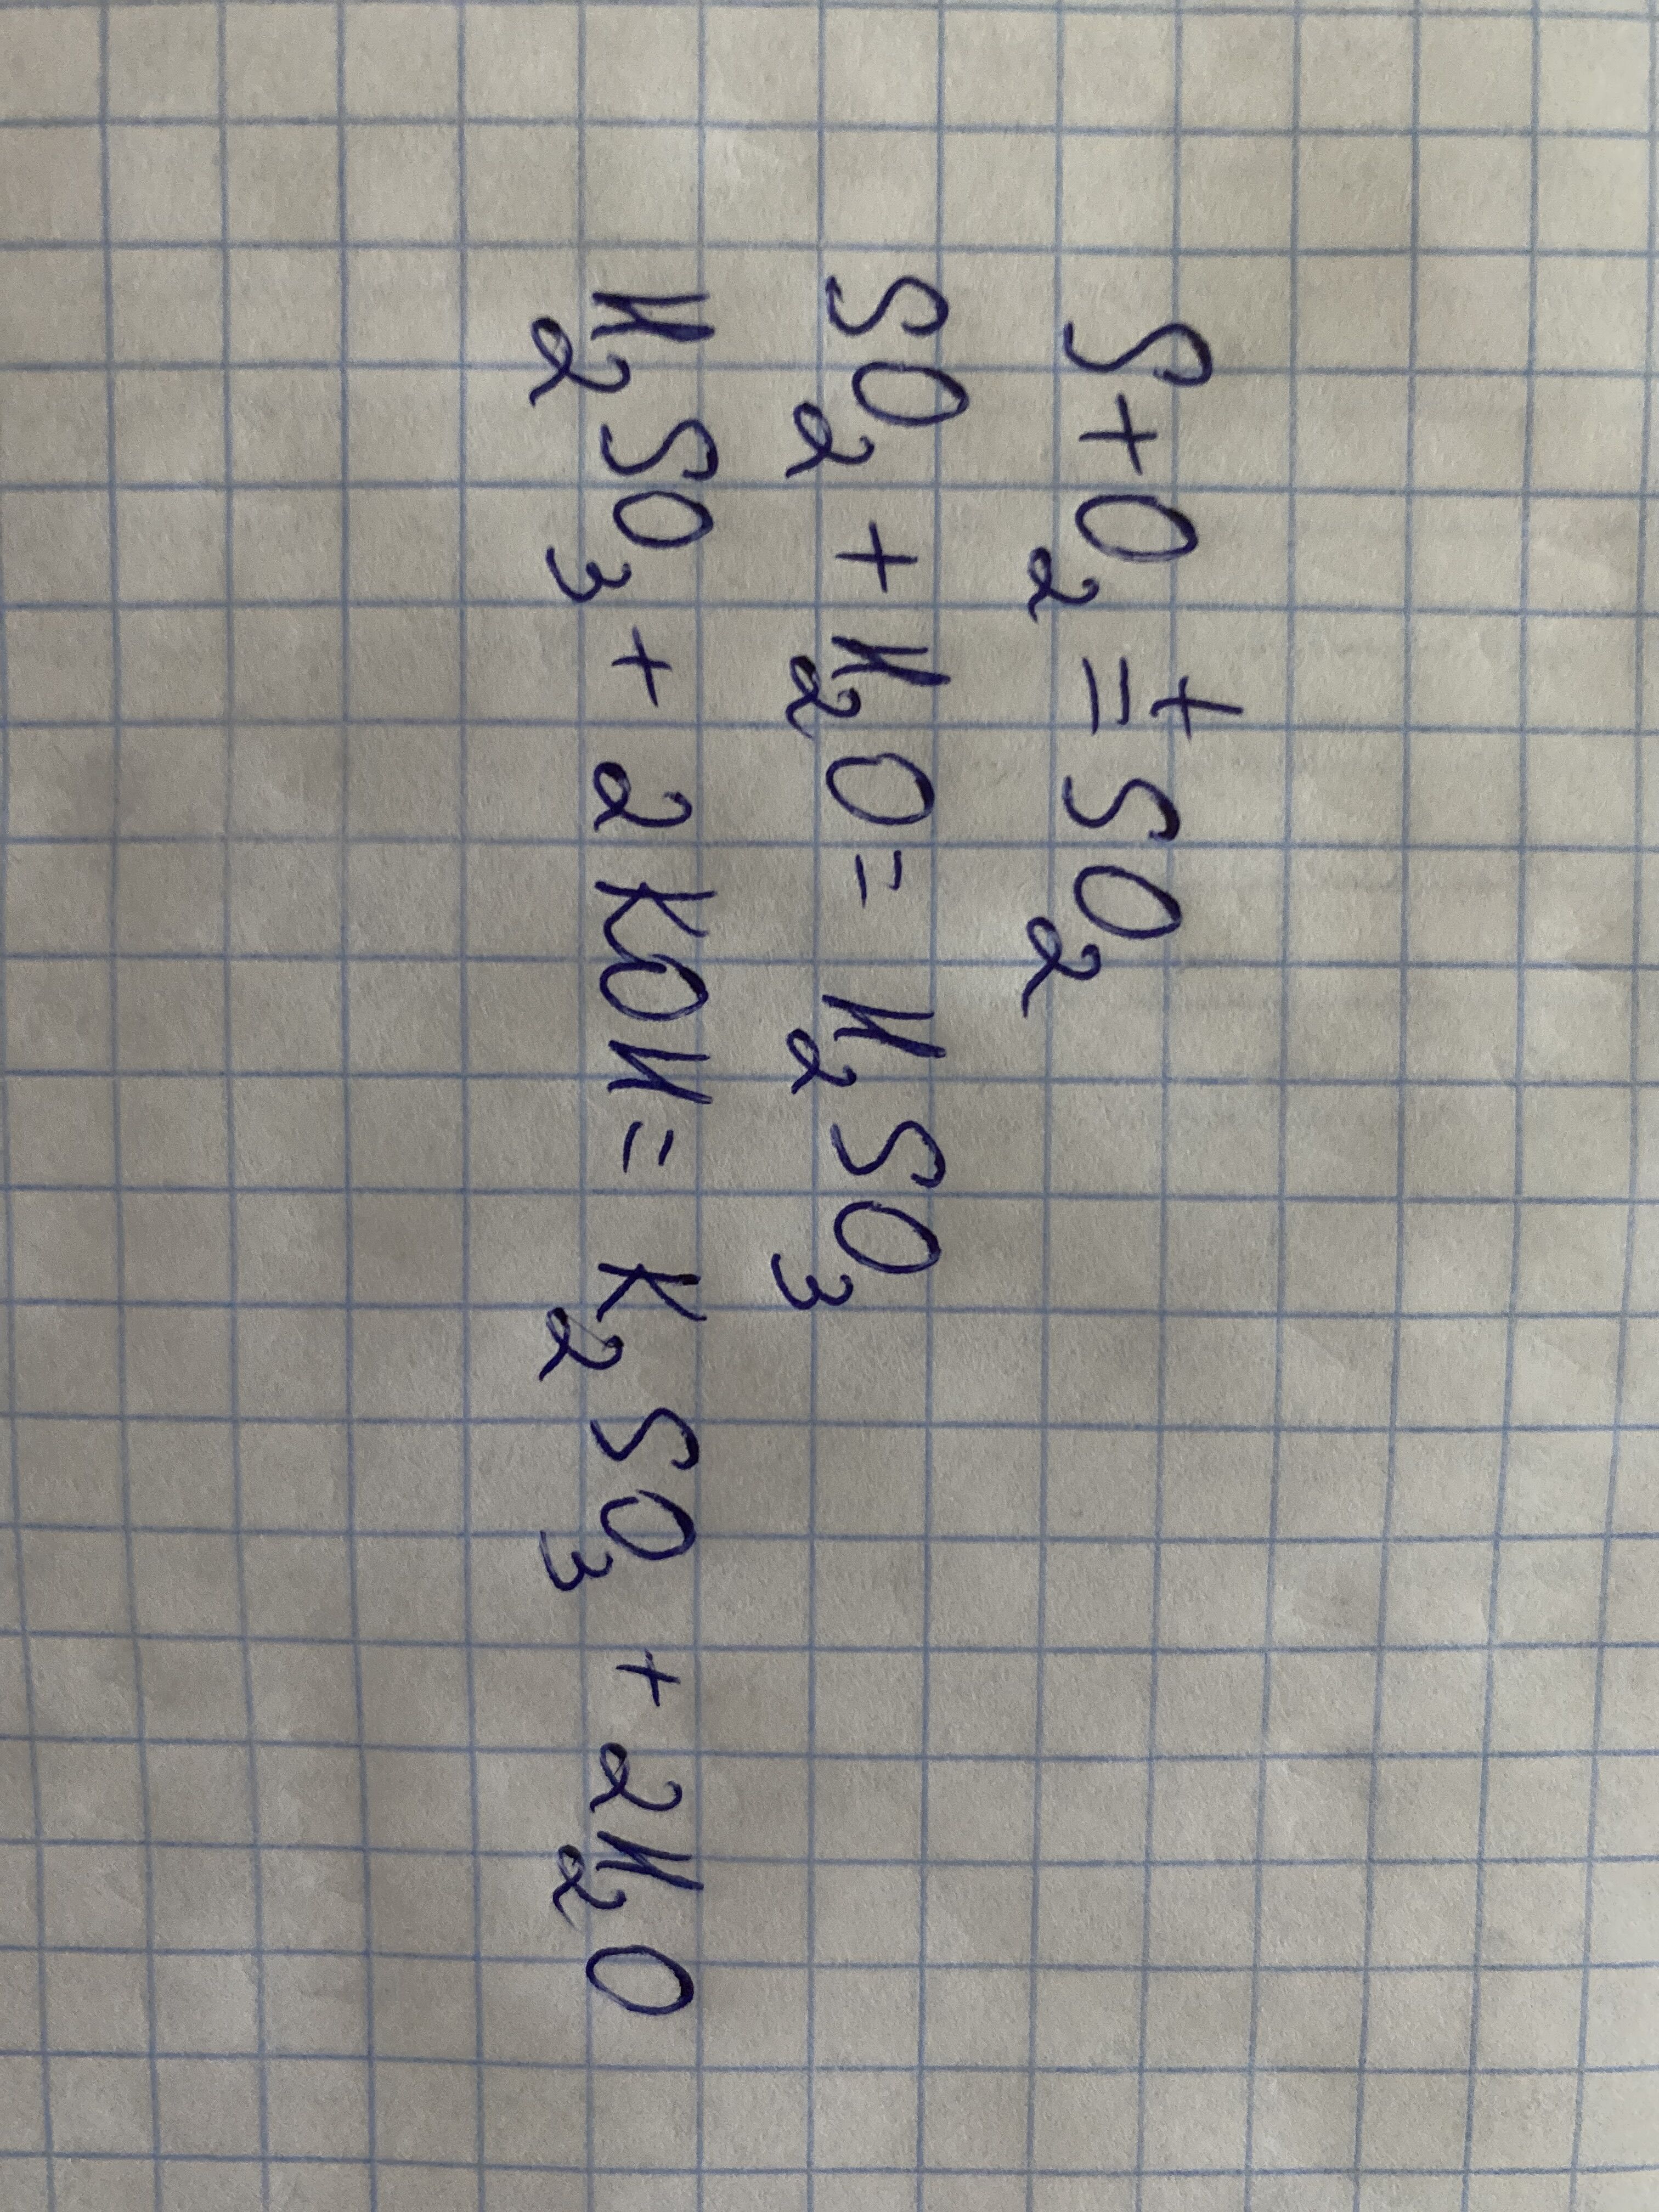 S + O₂ =ᵗ SO₂
SO₂ + H₂O = H₂SO₃
H₂SO₃ + 2KOH = K₂SO₃ + 2H₂O